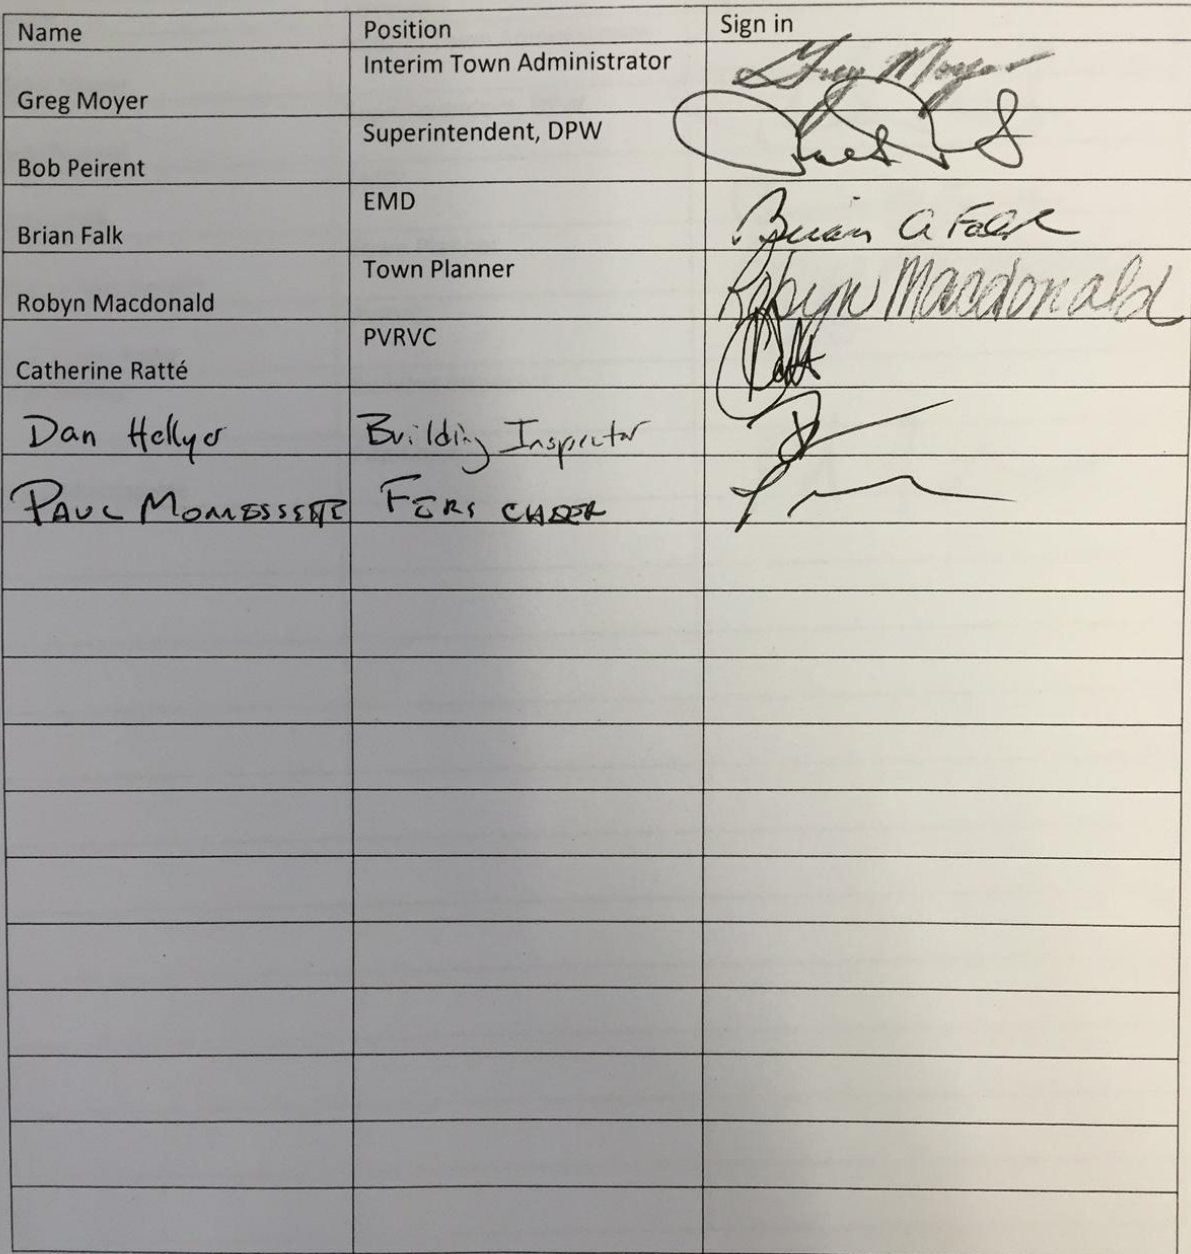 Name Position Sign in
Greg Moyer Interim Town Administrator Greg Moyer
Bob Peirent Superintendent, DPW
Brian Falk EMD Brian A Falk
Robyn Macdonald Town Planner Robyn Macdonald
Catherine Ratté PVRVC
Dan Hellyer Building Inspector
Paul